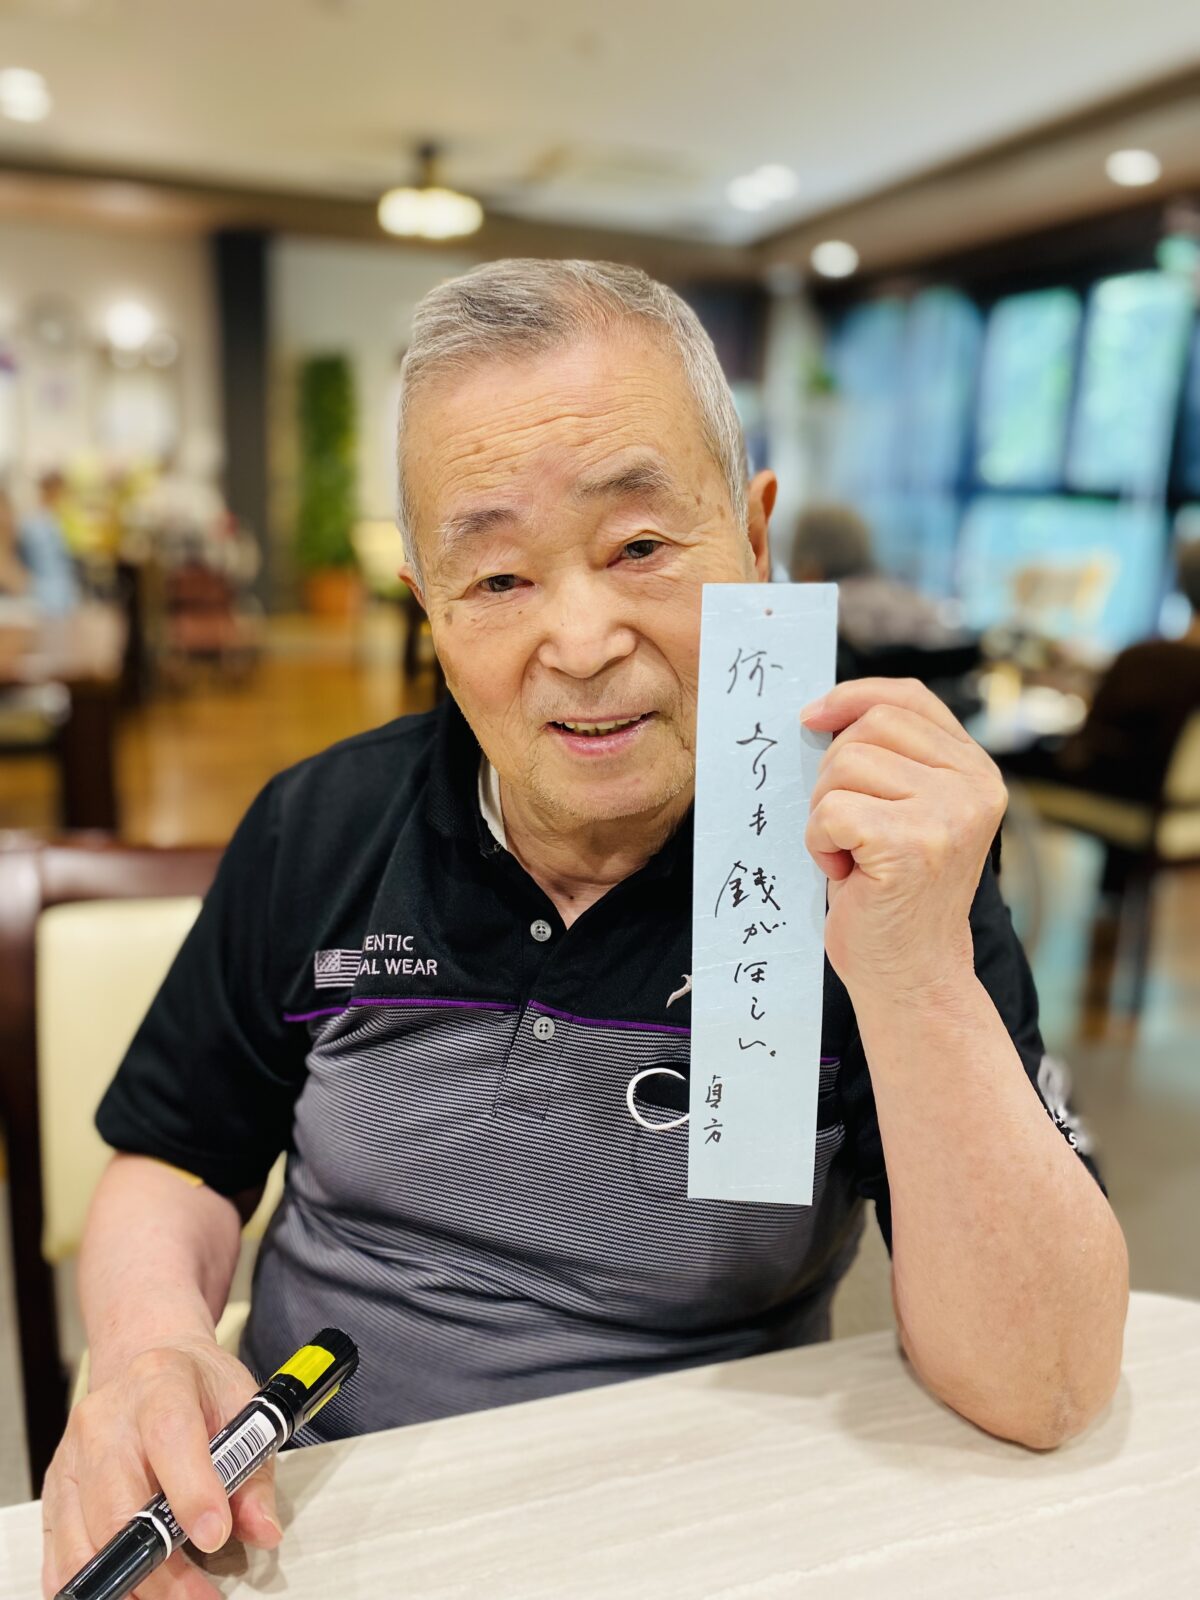 何よりも銭がほしい。
貞方
ENTIC
AL WEAR